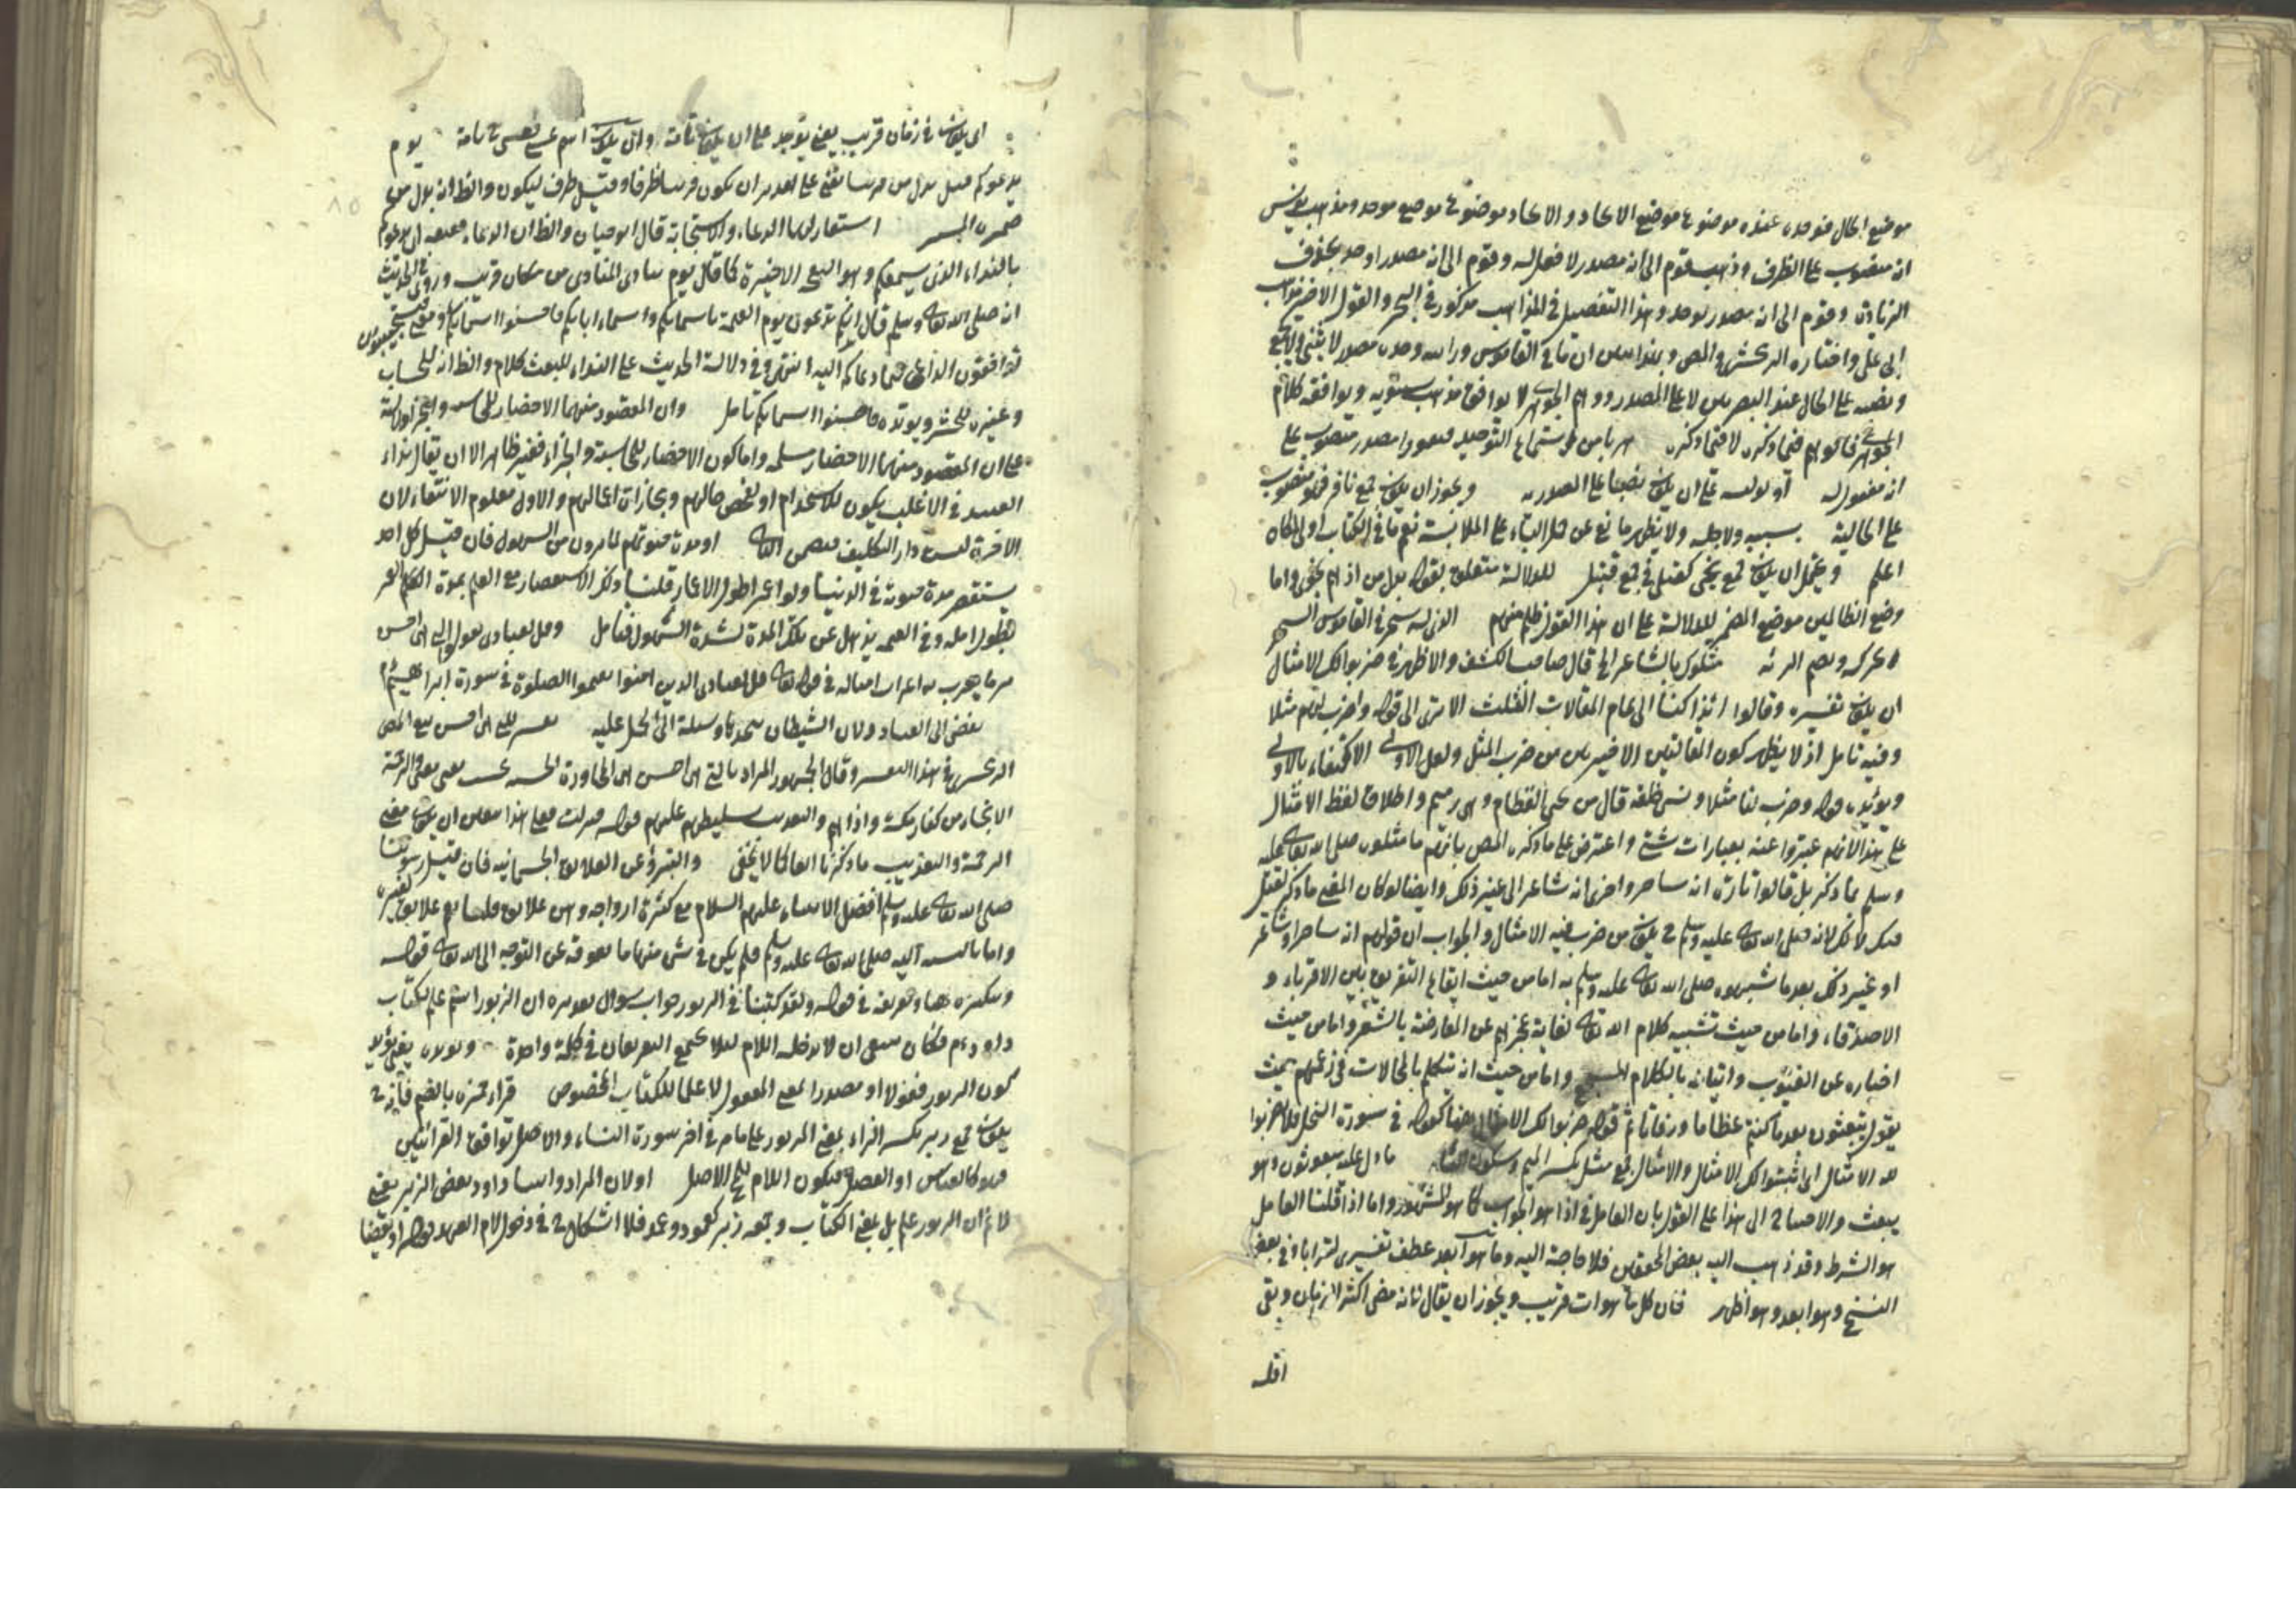 موضع الحال فوحده عنده موضوع موضع الايحاد والايحاد موضوع موضع موحد ومذهب يونس
انه منصوب على الظرف وذهب قوم الى انه مصدر لا فعل له وقوم الى انه مصدر اوحد بحذف
الزيادة وقوم الى انه مصدر لوحد وهذا التفصيل في المذاهب مذكور في البحر والقول الاخير
ابى على واختاره الزمخشرى والمص وبهذا ان ما في القاموس وراءيته وحده مصدر لا يثنى ولا يجمع
ونصبه على الحال عند البصريين لا على المصدر ووهم الجوهرى لا يوافق مذهب سيبويه ويوافقه كلام
الجوهرى فالوهم فيما ذكره لا فيما ذكره هربا من استماع التوحيد فنفورا مصدر منصوب على
انه مفعول له او تولية على ان يكون نصبا على المصدرية ويجوز ان يكون جمع نافر فهو منصوب
على الحالية بسببه ولاجله ولا يظهر مانع عن حمل الباء على الملابسة نعم ما في الكتاب اولى
اعلم ويحتمل ان يكون جمع نجى كقتلى في جمع قتيل للدلالة متعلق بقوله بدل من اذ هم نجوى واما
وضع الظالمين موضع المضمر للدلالة على ان هذا القول ظلم منهم الذى له سحر في القاموس السحر
ويحركه ويضم الرئه مثلوك بالشاعر الخ قال صاحب الكشف والاظهر في ضربوا لك الامثال
ان يكون تفسيره وقالوا ائذا كنا الى تمام المقالات الثلث الا ترى الى قوله واضرب لهم مثلا
وفيه تامل اذ لا يظهر كون المقالتين الاخيرتين من ضرب المثل ولعل الاولى الاكتفاء بالاولى
ويؤيده قوله وضرب لنا مثلا ونسى خلقه قال من يحيى العظام وهى رميم واطلاق لفظ الامثال
على هذا لانهم عبروا عنه بعبارات شتى واعترض على ما ذكره المص بانهم ما مثلوه صلى الله تعالى عليه
وسلم بما ذكر بل قالوا تارة انه ساحر واخرى انه شاعر الى غير ذلك وايضا لو كان المعنى ما ذكر لقيل
فيك لا لك لانه صلى الله تعالى عليه وسلم ح يكون من ضرب فيه الامثال والجواب ان قولهم انه ساحر او شاعر
او غير ذلك بعد ما شبهوه صلى الله تعالى عليه وسلم به اما من حيث ايقاع التفريق بين الاقرباء و
الاصدقاء، واما من حيث تشبيه كلام الله تعالى لغاية عجزهم عن المعارضة بالشعر واما من حيث
اخباره عن الغيوب واتيانه بالكلام المسجع واما من حيث انه تكلم بالمحالات في زعمهم حيث
يقول تبعثون بعد ما كنتم عظاما ورفاتا ثم قوله ضربوا لك الامثال هنا كقوله في سورة النحل فلا تضربوا
لله الامثال اى اثبتوا لك الامثال والامثال جمع مثل بكسر الميم وسكون الثاء ما دل عليه مبعوثون وهو
يبعث والاحتياج الى هذا على القول بان العامل في اذا هو الجواب كما هو المشهور واما اذا قلنا العامل
هو الشرط وقد ذهب اليه بعض المحققين فلا حاجة اليه وما هو ابعد عطف تفسيرى لترابا وفي بعض
النسخ وهو ابعد وهو اظهر فان كل ما هو ات قريب ويجوز ان يقال لانه مضى اكثر الازمان وبقى
اقله
اى يكون في زمان قريب يعنى يتوجه على ان يكون تامة وان يكون اسم عسى فعسى ح تامة يوم
يدعوكم قيل بدل من قريبا يعنى على تقدير ان يكون قريبا ظرفا وقيل ظرف ليكون والظ انه بدل من
ضمير استعار لهما الدعاء والاستجابة قال ابو حيان والظ ان الدعاء حقيقة اى يدعوكم
بالنداء الذى يسمعكم وهو النفخة الاخيرة كما قال يوم ينادى المنادى من مكان قريب وروى في الحديث
انه صلى الله تعالى وسلم قال انكم تدعون يوم القيمة باسمائكم واسماء ابائكم فاحسنوا اسمائكم ومعنى فتستجيبون
توافقون الداعى فيما دعاكم اليه انتهى وفي دلالة الحديث على النداء للبعث كلام والظ انه للحساب
وغيره للحشر ويؤيده فاحسنوا اسمائكم تامل وان المقصود منهما الاحضار للمحاسبة والجزاء
على ان المقصود منهما الاحضار مسلمة واما كون الاحضار للمحاسبة والجزاء فغير ظاهر الا ان يقال نداء
العبيد في الاغلب يكون للاستخدام او لتفحص حالهم ومجازات اعمالهم والاول معلوم الانتفاء لان
الاخرة ليست دار التكليف فتعين الثانى او مدة حيوتكم لما ترون من الهول فان قيل كل احد
يستقصر مدة حيوته في الدنيا ولو اعمر اطول الاعمار قلنا ذكر الاستقصار مع العلم بمدة
بطول امله وفي القيمة يذهل عن تلك المدة لشدة الهول فتامل وقل لعبادى يقولوا التى هى احسن
مر ما يعرب به اعراب امثاله في قوله تعالى قل لعبادى الذين امنوا يقيموا الصلوة في سورة ابراهيم
يفضى الى العناد ولان الشيطان وسيلة الى الحمل عليه تفسير للتى هى احسن تبع المص
الزمخشرى في هذا التفسير وقال الجمهور المراد بالتى هى احسن هى المحاورة الحسنى بحسب معنى معنى والرحمة
الانجاء من كفار مكة واذاهم والتعذيب تسليطهم عليهم قوله فعلى هذا ان يكون معنى
الرحمة والتعذيب ما ذكرنا انفا كما لا يخفى والتبرؤ عن العلائق الجسمانية فان قيل رسولنا
صلى الله تعالى عليه وسلم افضل الانبياء عليهم السلام مع كثرة ازواجه وهى علائق قلنا هى علائق لغيره
واما بالنسبة اليه صلى الله تعالى عليه وسلم فلم يكن في شئ منها ما يعوقه عن التوجه الى الله تعالى قوله
وتنكيره ههنا وتعريفه في قوله ولقد كتبنا في الزبور جواب سؤال تقديره ان الزبور اسم علم لكتاب
داود ءم فكان ينبغى ان لا يدخله اللام لئلا يجتمع التعريفان في كلمة واحدة ويؤيده يعنى يؤيد
كون الزبور فعولا او مصدرا بمعنى المفعول لا علما للكتاب المخصوص قراءة حمزة بالضم فانه ح
يكون جمع زبر بكسر الزاء بمعنى المزبور على ما مر في اخر سورة النساء والاصل توافق القرائتين
فهو كالعباس او الفضل فيكون اللام للمح الاصل او لان المراد واتينا داود بعض الزبر يعنى
لا نم ان الزبور علم بل بمعنى الكتاب وجمعه زبر كعمود وعمد فلا اشكال ح في دخول لام العهد قوله او بعضا